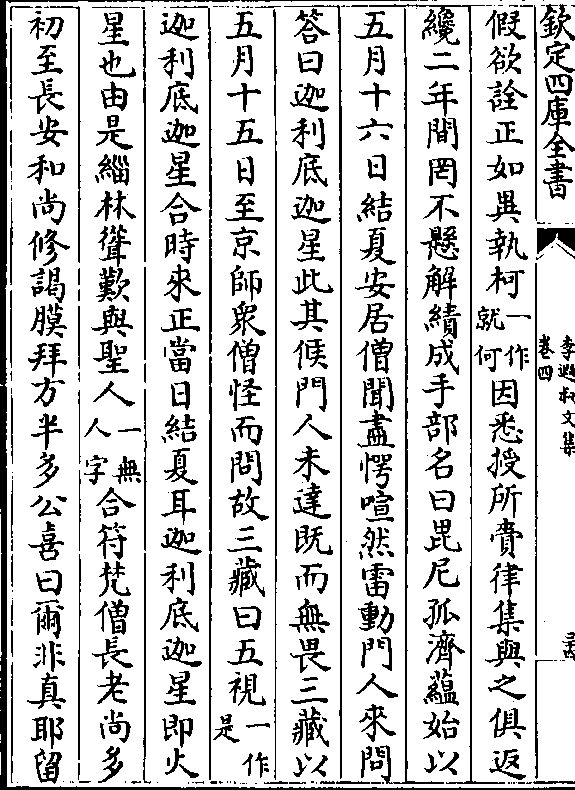 欽定四庫全書
李遐叔文集
卷四
假欲詮正如與執柯一作就何因悉授所賷律集與之俱返
纔二年間罔不懸解績成手部名曰毘尼孤濟蘊始以
五月十六日結夏安居僧聞盡愕喧然雷動門人來問
答曰迦利底迦星此其候門人未達既而無畏三藏以
五月十五日至京師衆僧怪而問故三藏曰五視一作是
迦利底迦星合時來正當日結夏耳迦利底迦星即火
星也由是緇林聳歎與聖人一無人字合符梵僧長老尚多
初至長安和尚修謁膜拜方半多公喜曰爾非真耶留